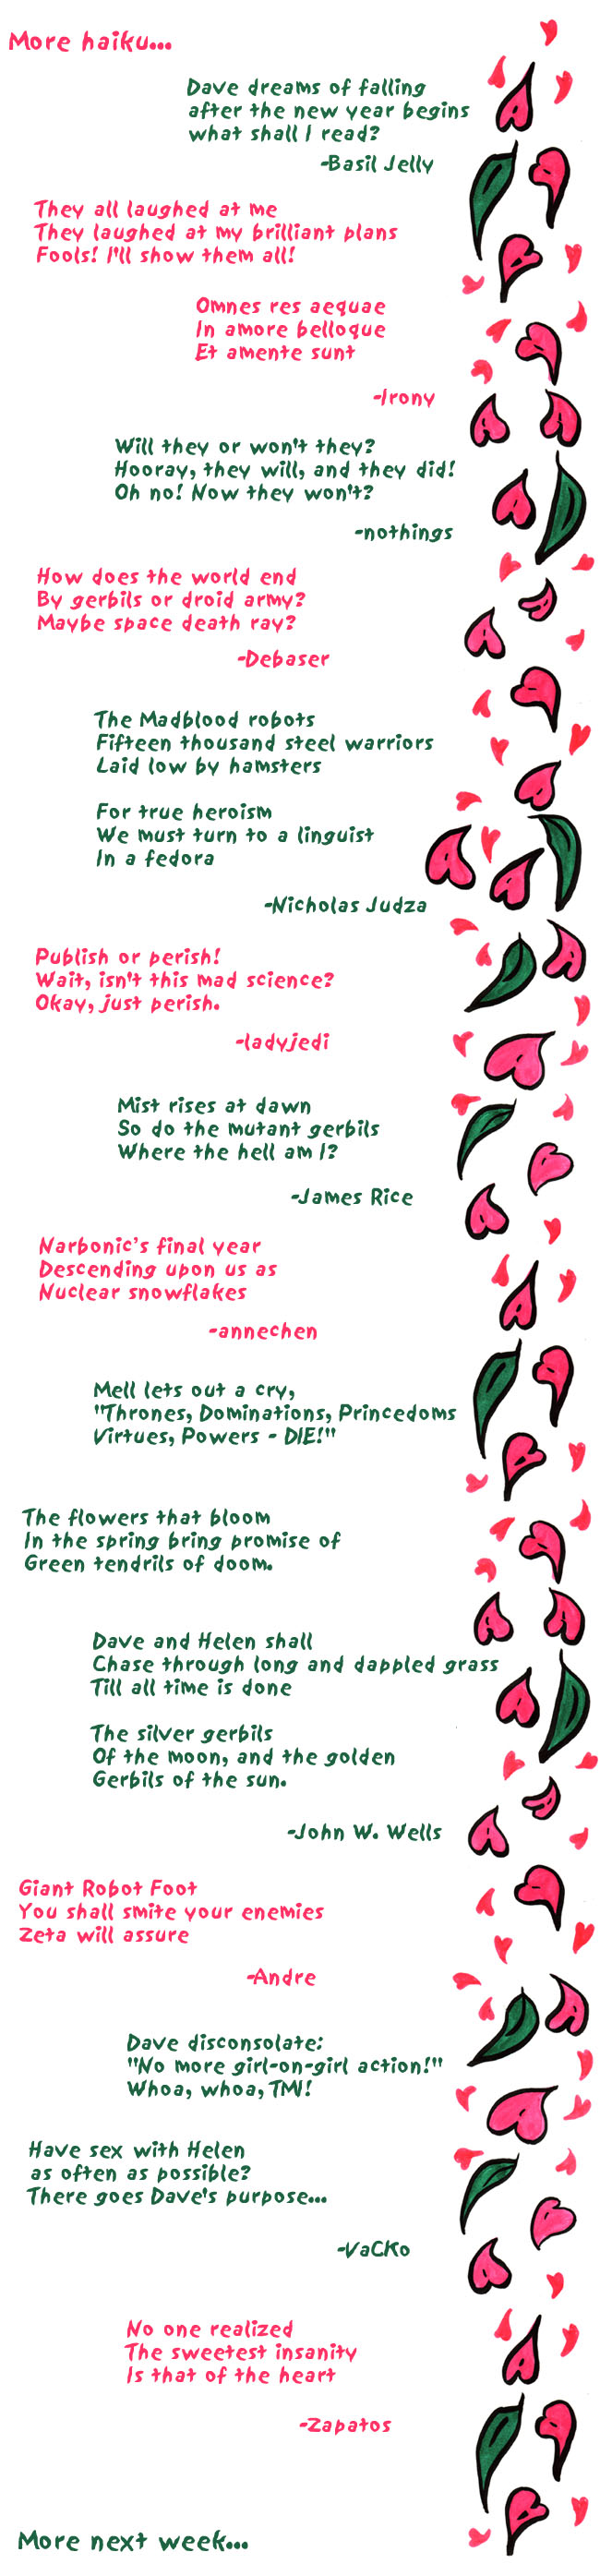 More haiku...
Dave dreams of falling
after the new year begins
what shall I read?
-Basil Jelly
They all laughed at me
They laughed at my brilliant plans
Fools! I'll show them all!
Omnes res aequae
In amore belloque
Et amente sunt
-Irony
Will they or won't they?
Hooray, they will, and they did!
Oh no! Now they won't?
-nothings
How does the world end
By gerbils or droid army?
Maybe space death ray?
-Debaser
The Madblood robots
Fifteen thousand steel warriors
Laid low by hamsters
For true heroism
We must turn to a linguist
In a fedora
-Nicholas Judza
Publish or perish!
Wait, isn't this mad science?
Okay, just perish.
-ladyjedi
Mist rises at dawn
So do the mutant gerbils
Where the hell am I?
-James Rice
Narbonic's final year
Descending upon us as
Nuclear snowflakes
-annechen
Mell lets out a cry,
"Thrones, Dominations, Princedoms
Virtues, Powers - DIE!"
The flowers that bloom
In the spring bring promise of
Green tendrils of doom.
Dave and Helen shall
Chase through long and dappled grass
Till all time is done
The silver gerbils
Of the moon, and the golden
Gerbils of the sun.
-John W. Wells
Giant Robot Foot
You shall smite your enemies
Zeta will assure
-Andre
Dave disconsolate:
"No more girl-on-girl action!"
Whoa, whoa, TMI!
Have sex with Helen
as often as possible?
There goes Dave's purpose...
-VaCKo
No one realized
The sweetest insanity
Is that of the heart
-Zapatos
More next week...